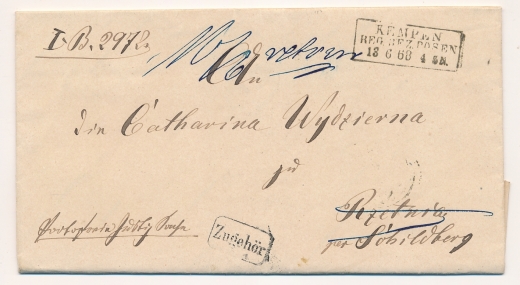 I B. 2972.
retour
KEMPEN
REG. BEZ. POSEN
13 6 68 4 5N.
An
die Catharina Wydzierna
zu
Rzetnia
per Schildberg
Portofreie Justiz Sache
Zugehör